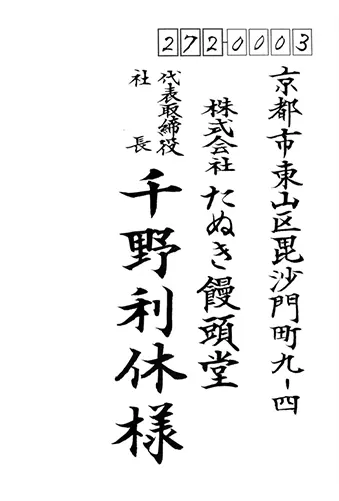 272-0003
京都市東山区毘沙門町九-四
株式会社たぬき饅頭堂
代表取締役
社長
千野利休様